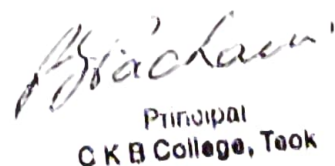 Principal
C K B College, Teok